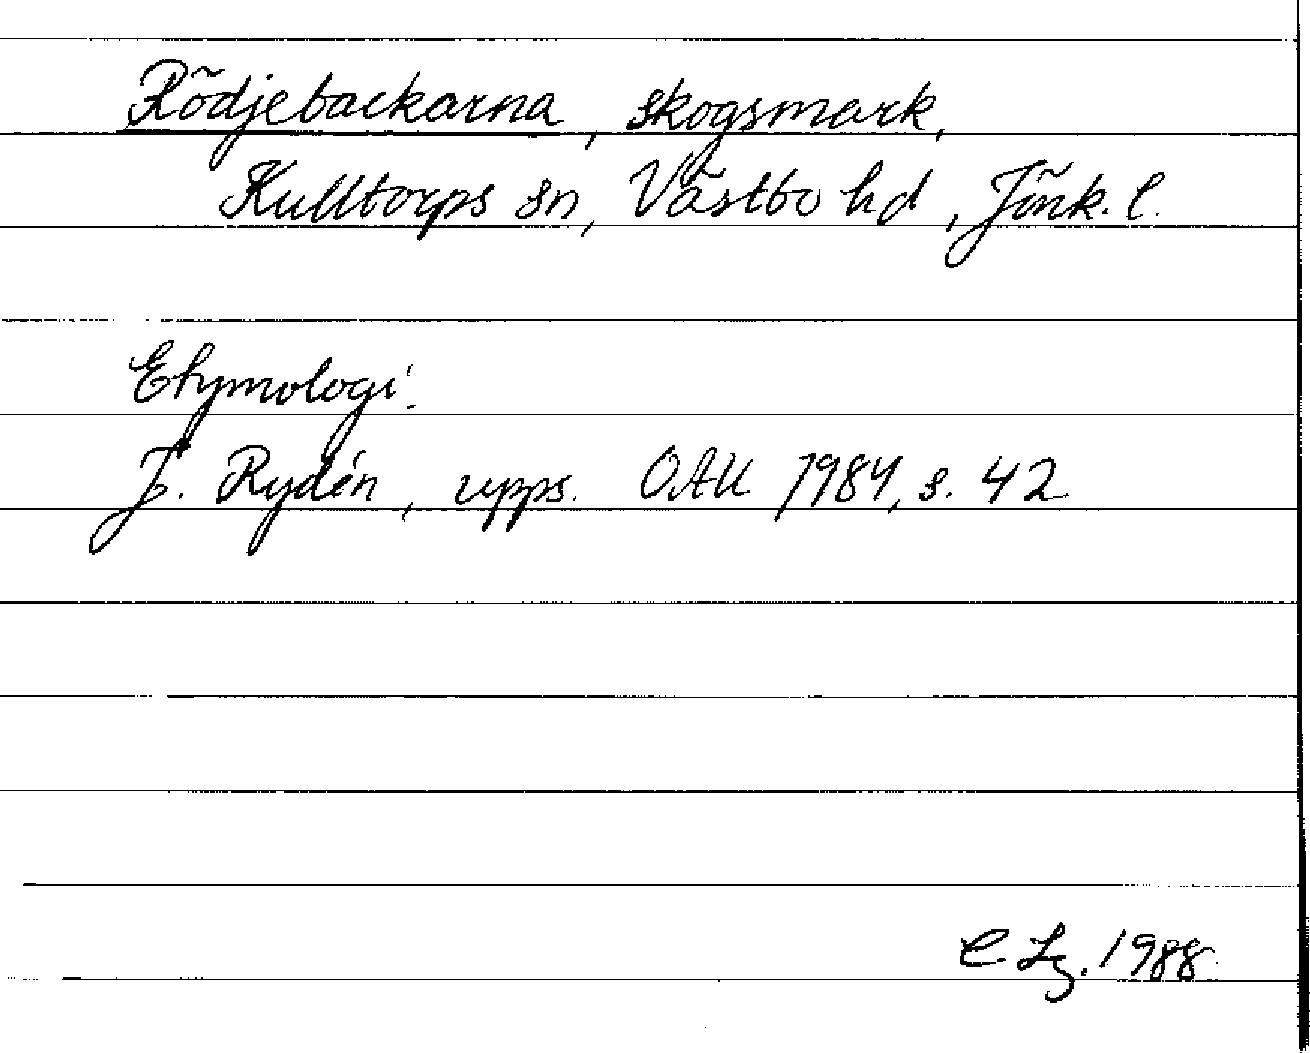 Rödjebackarna, skogsmark,
Kulltorps sn, Västbo hd, Jönk. l.
Etymologi.
J. Rydén, upps. OAU 1984, s. 42
C. Lg. 1988